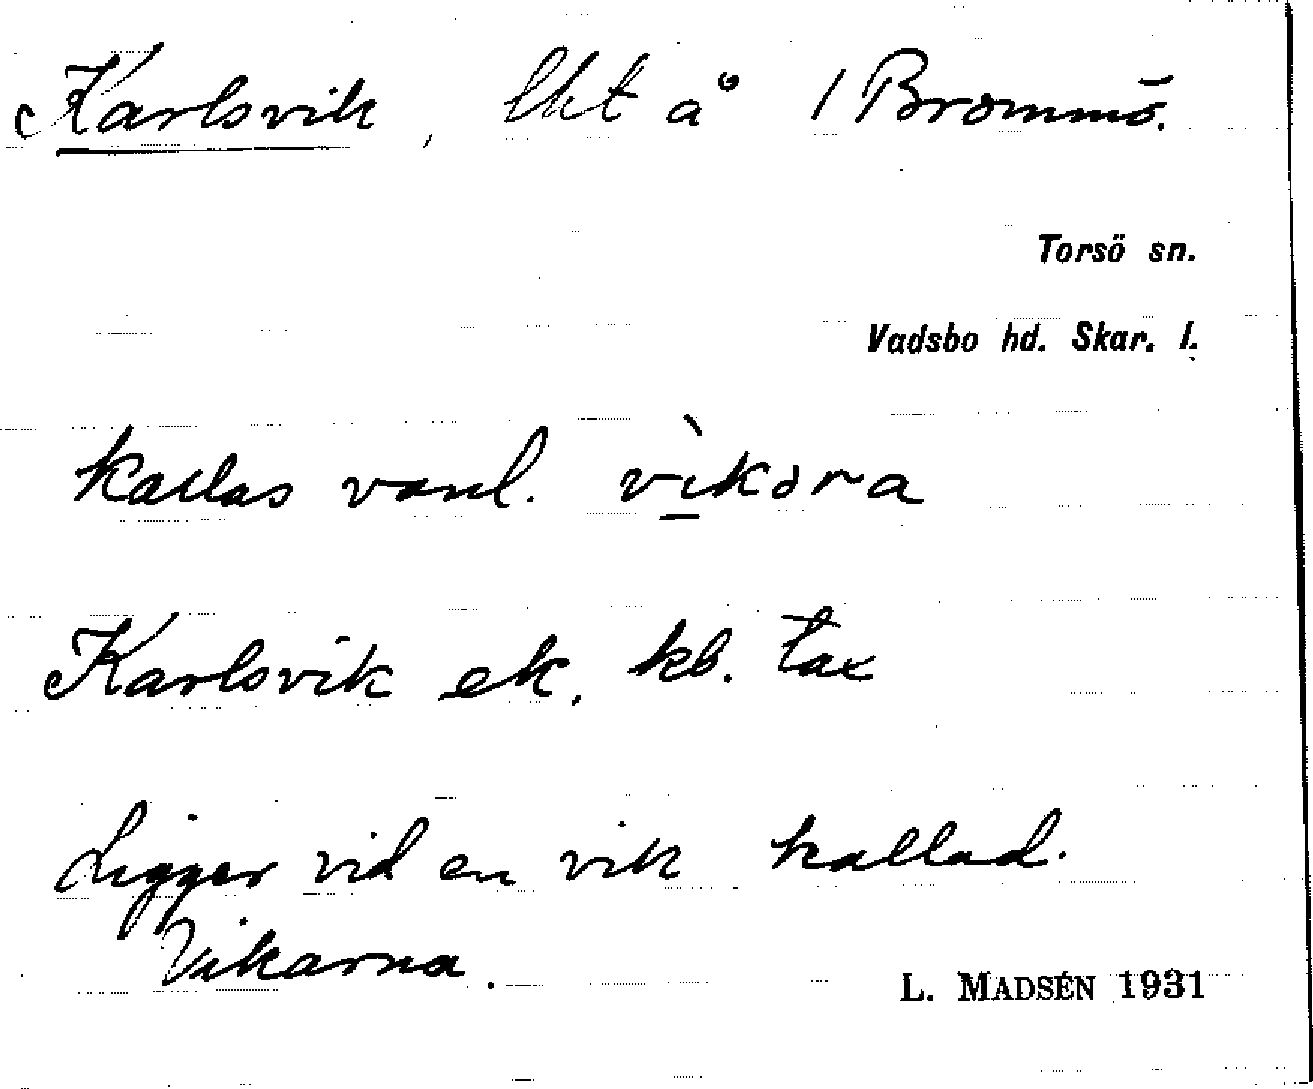 Karlsvik, lht å 1 Brommö.
Torsö sn.
Vadsbo hd. Skar. l.
kallas vanl. vìkəra
Karlsvik ek. kb. tax
Ligger vid en vik kallad.
Vikarna.
L. MADSÉN 1931